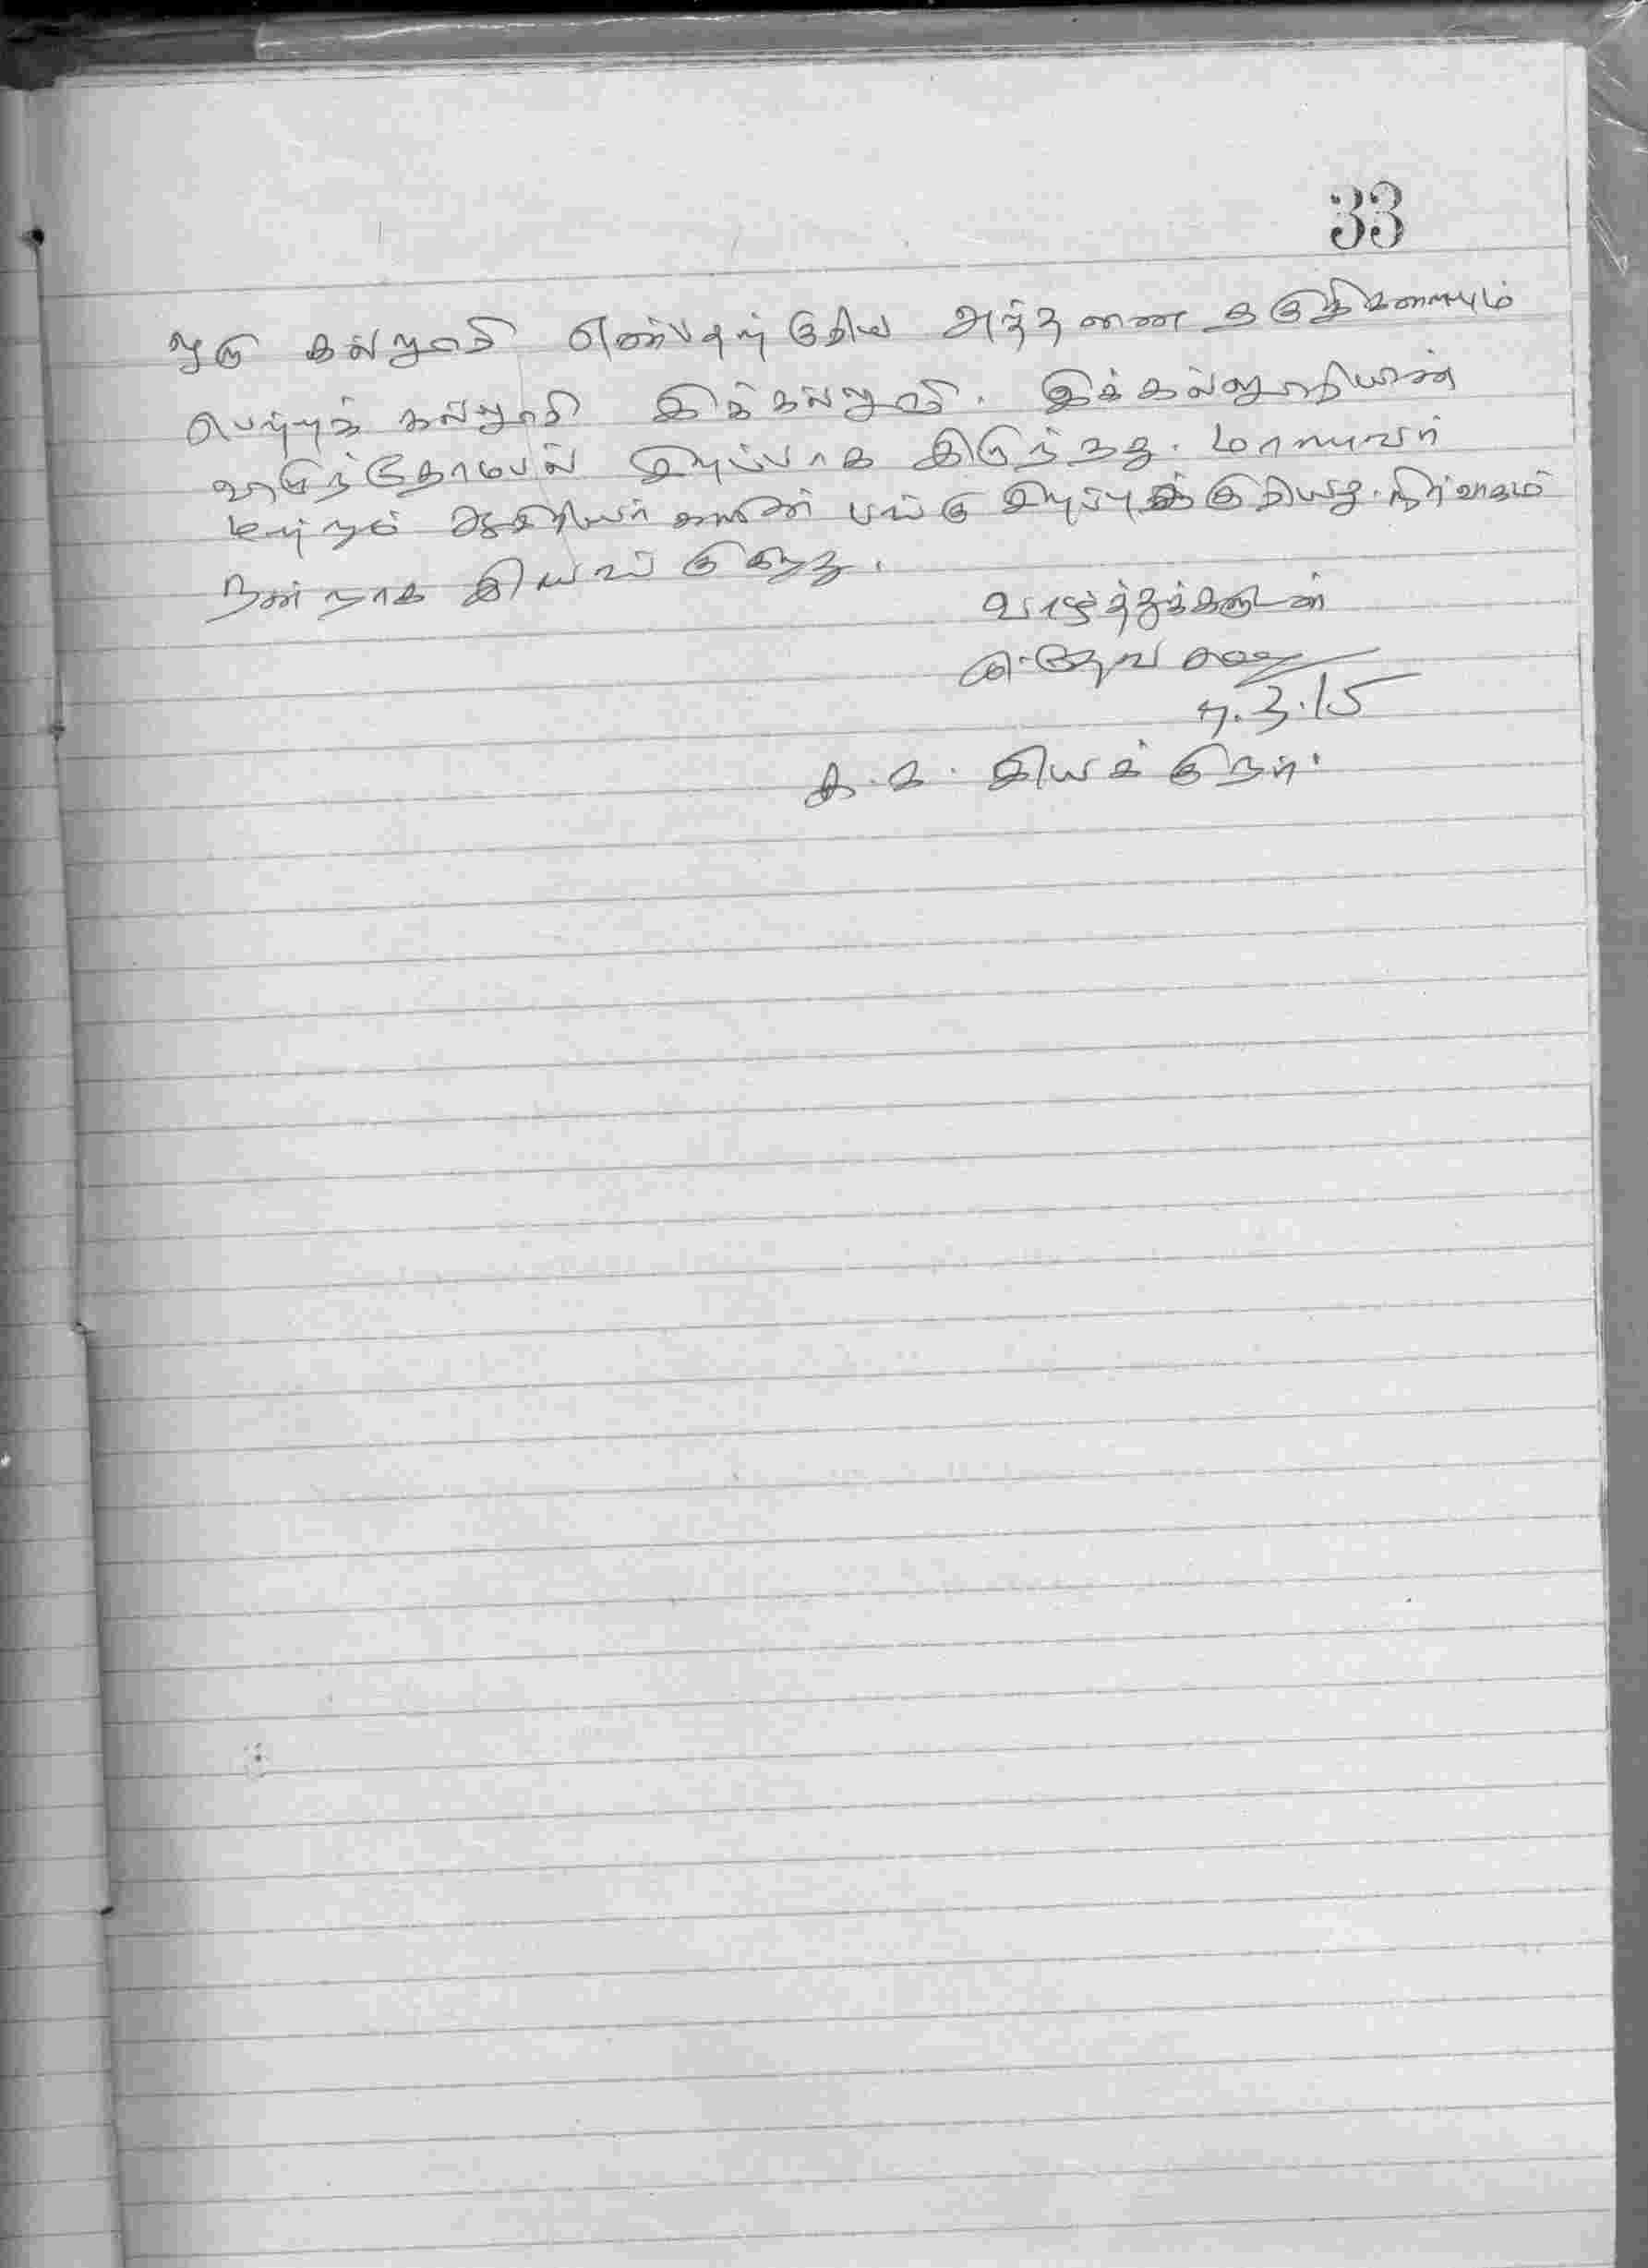 33
ஒரு கல்லூரி என்பதற்குரிய அத்தனை தகுதிகளையும்
பெற்றுக் கல்லூரி இக்கல்லூரி. இக்கல்லூரியின்
விருந்தோம்பல் சிறப்பாக இருந்தது. மாணவர்
மற்றும் ஆசிரியர்களின் பங்கு சிறப்புக்குரியது. நிர்வாகம்
நன்றாக இயங்குகிறது.
வாழ்த்துக்களுடன்
7.3.15
இயக்குநர்.